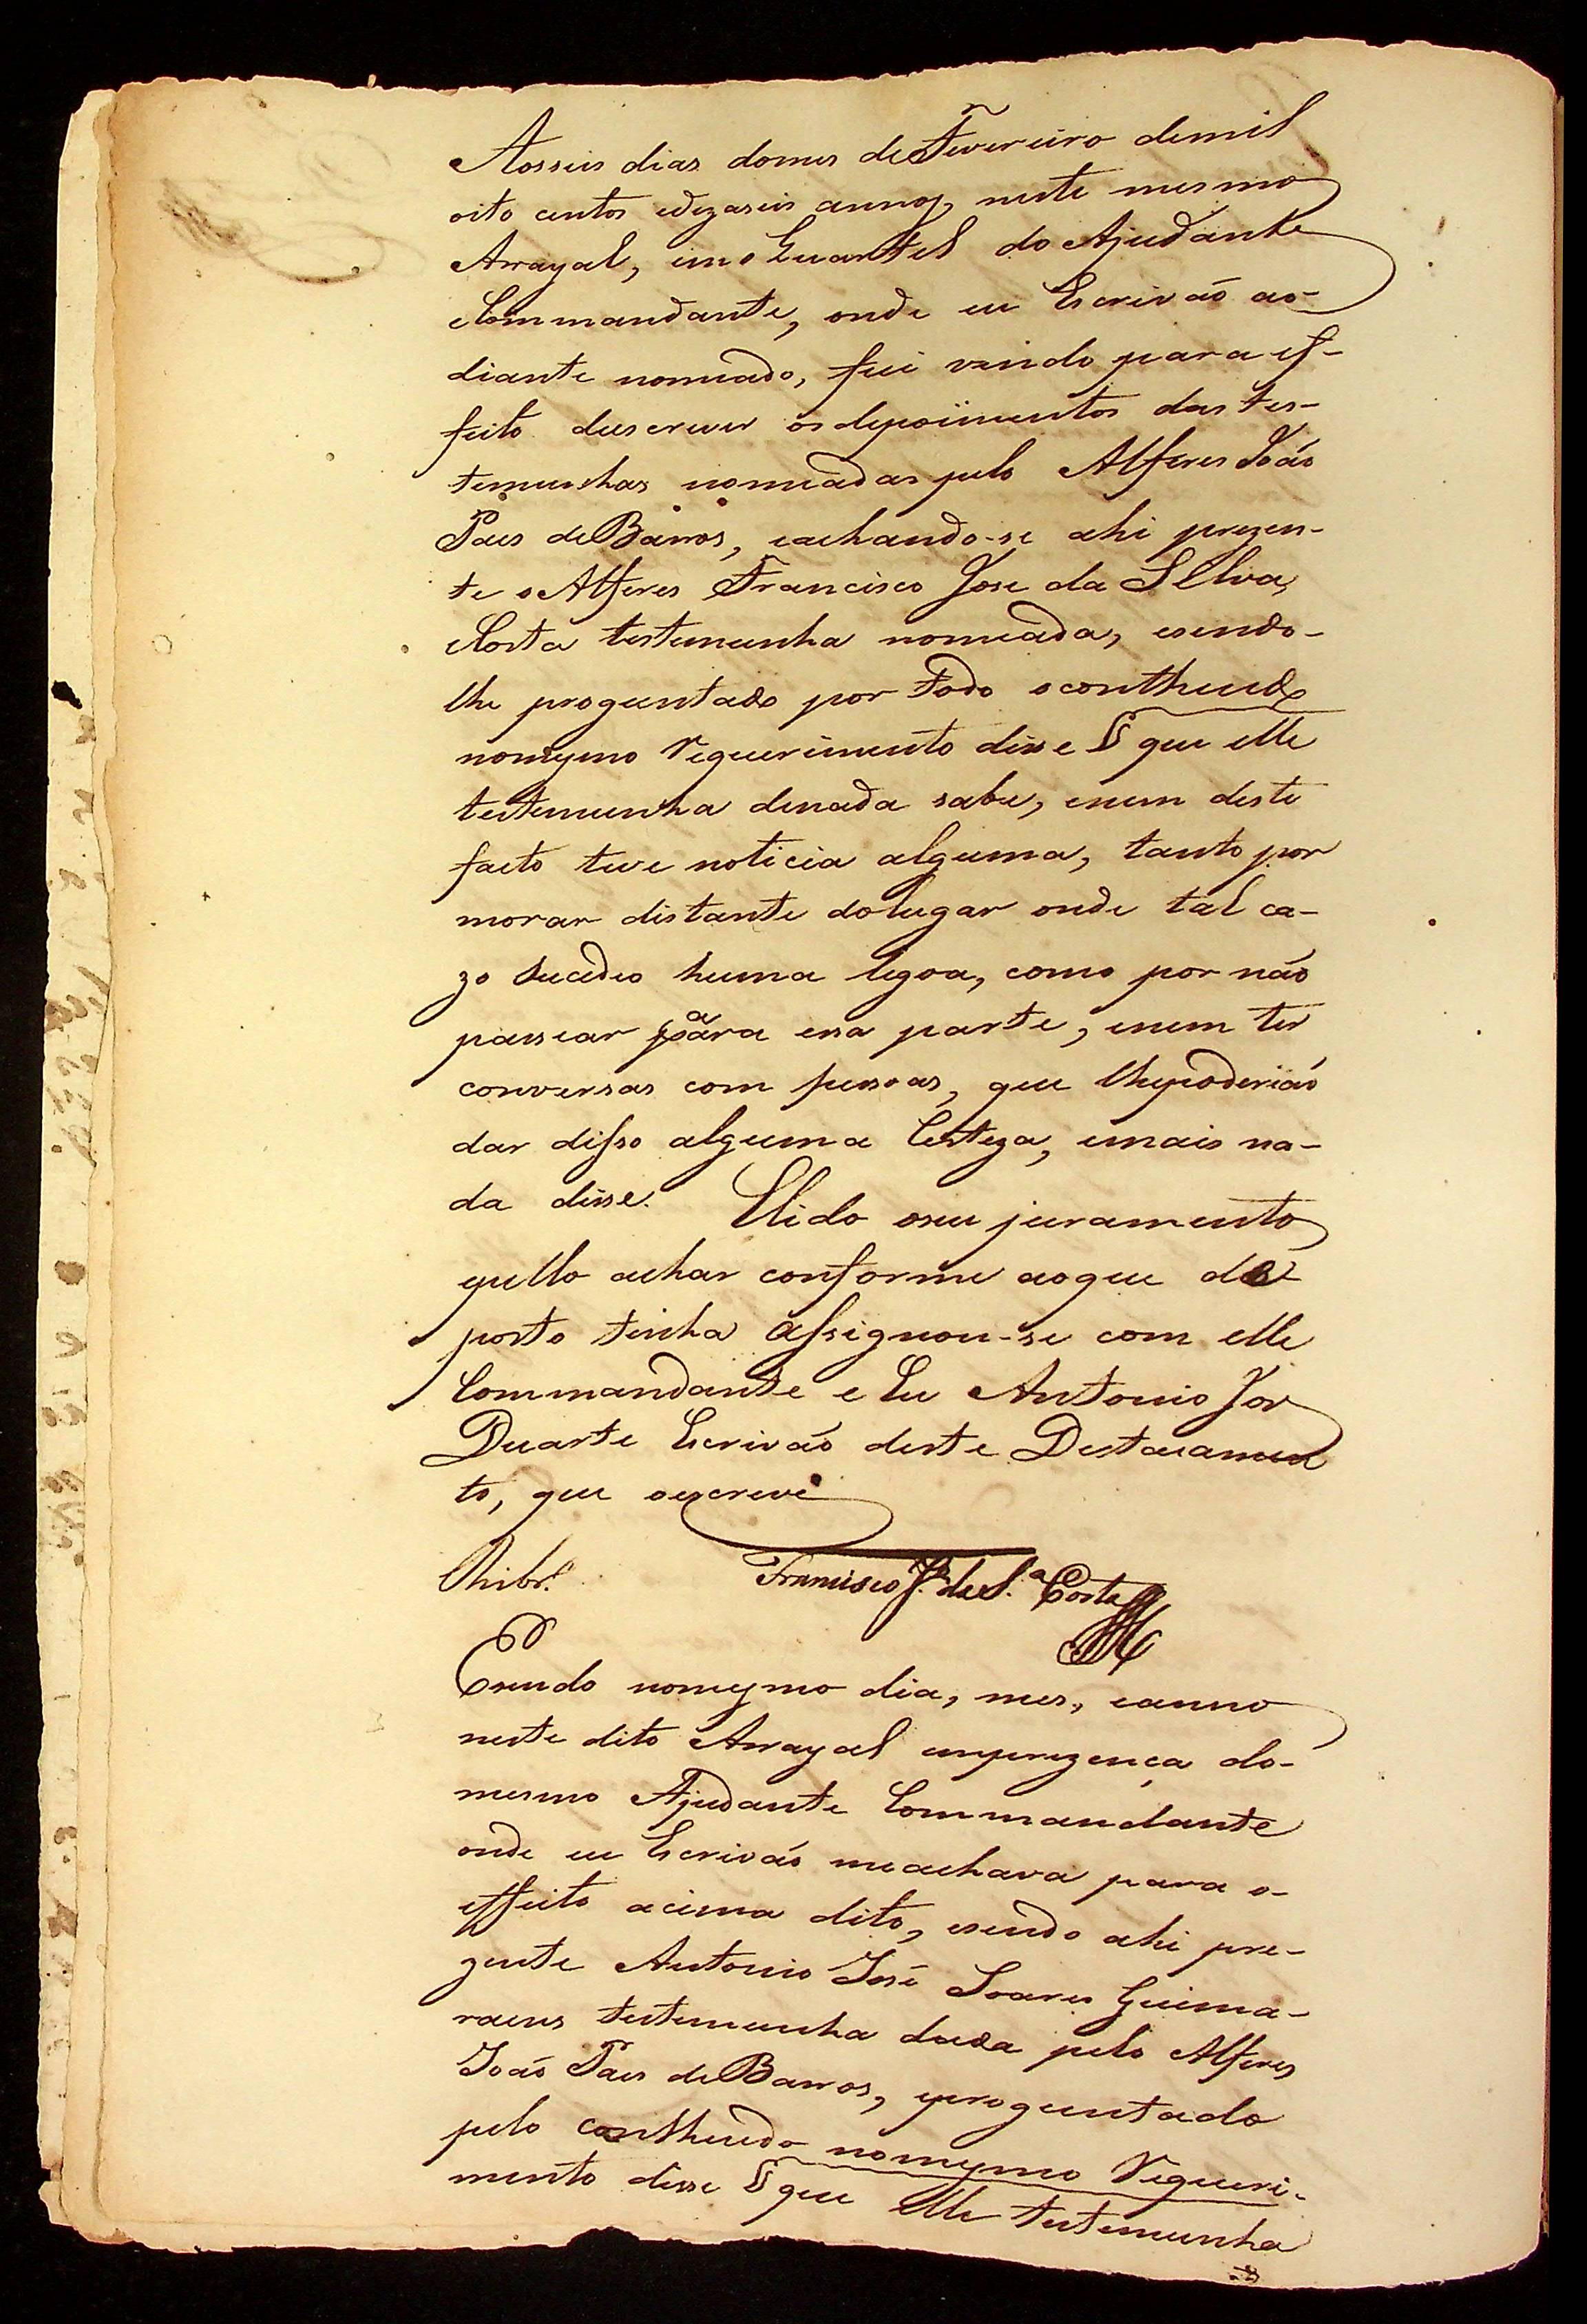 Aosseis dias domes deFevereiro demil
oito centos edezaseis annos, neste mesmo
Arrayal, eno Quartel do Ajudante
Commandante, onde eu Escrivaõ ao-
diante nomeado, fui vindo para ef-
feito deescrever os depoimentos das tes-
temunhas nomeadas pelo Alferes Joaõ
Paes deBarros, eachando-se ahi prezen-
te oAlferes Francisco Jose da Sillva,
Costa testemunha nomeada, esendo-
lhe proguntado por todo ocontheudo
nomesmo Requerimento disse § que elle
testemunha denada sabe, enem deste
facto teve noticia alguma, tanto por
morar distante dolugar onde tal ca-
zo sucedeo huma legoa, como por naõ
passear para essa parte, enem ter
conversas com pessoas, que lhepoderiaõ
dar disso alguma Certeza, emais na-
da disse. Elido oseu juramento
epello achar conforme aoque de-
posto tinha assignou-se com elle
Commandante e Eu Antonio Joze
Duarte Escrivaõ deste Destacamen
to, que oescrevi
Ribr.º
Francisco J.e daS.a Costa
Esendo nomesmo dia, mes, eanno
neste dito Arrayal emprezença do-
mesmo Ajudante Commandante
onde eu Escrivaõ meachava para o-
effeito acima dito, esendo ahi pre-
zente Antonio José Soares Guima-
raens testemunha dada pelo Alferes
Joaõ Paes deBarros, eproguntado
pelo contheudo nomesmo Requeri-
mento disse § que elle testemunha